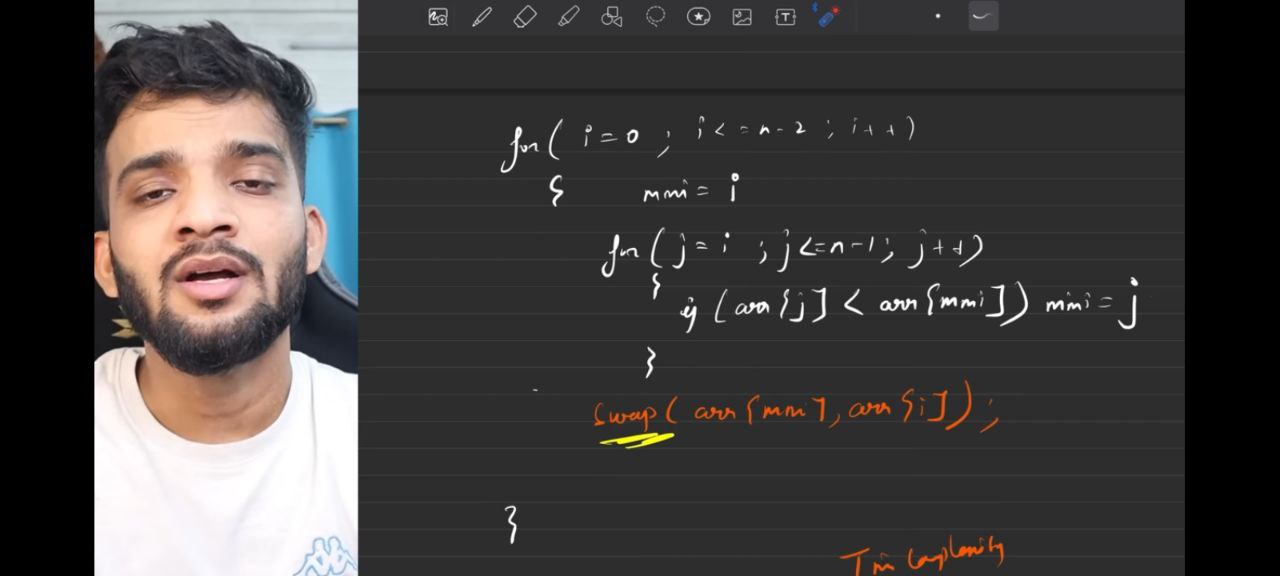 for( i=0 ; i<=n-2 ; i++)
{ mini = i
for( j=i ; j<=n-1 ; j++)
{
if (arr[j] < arr[mini]) mini = j
}
swap( arr[mini], arr[i]);
}